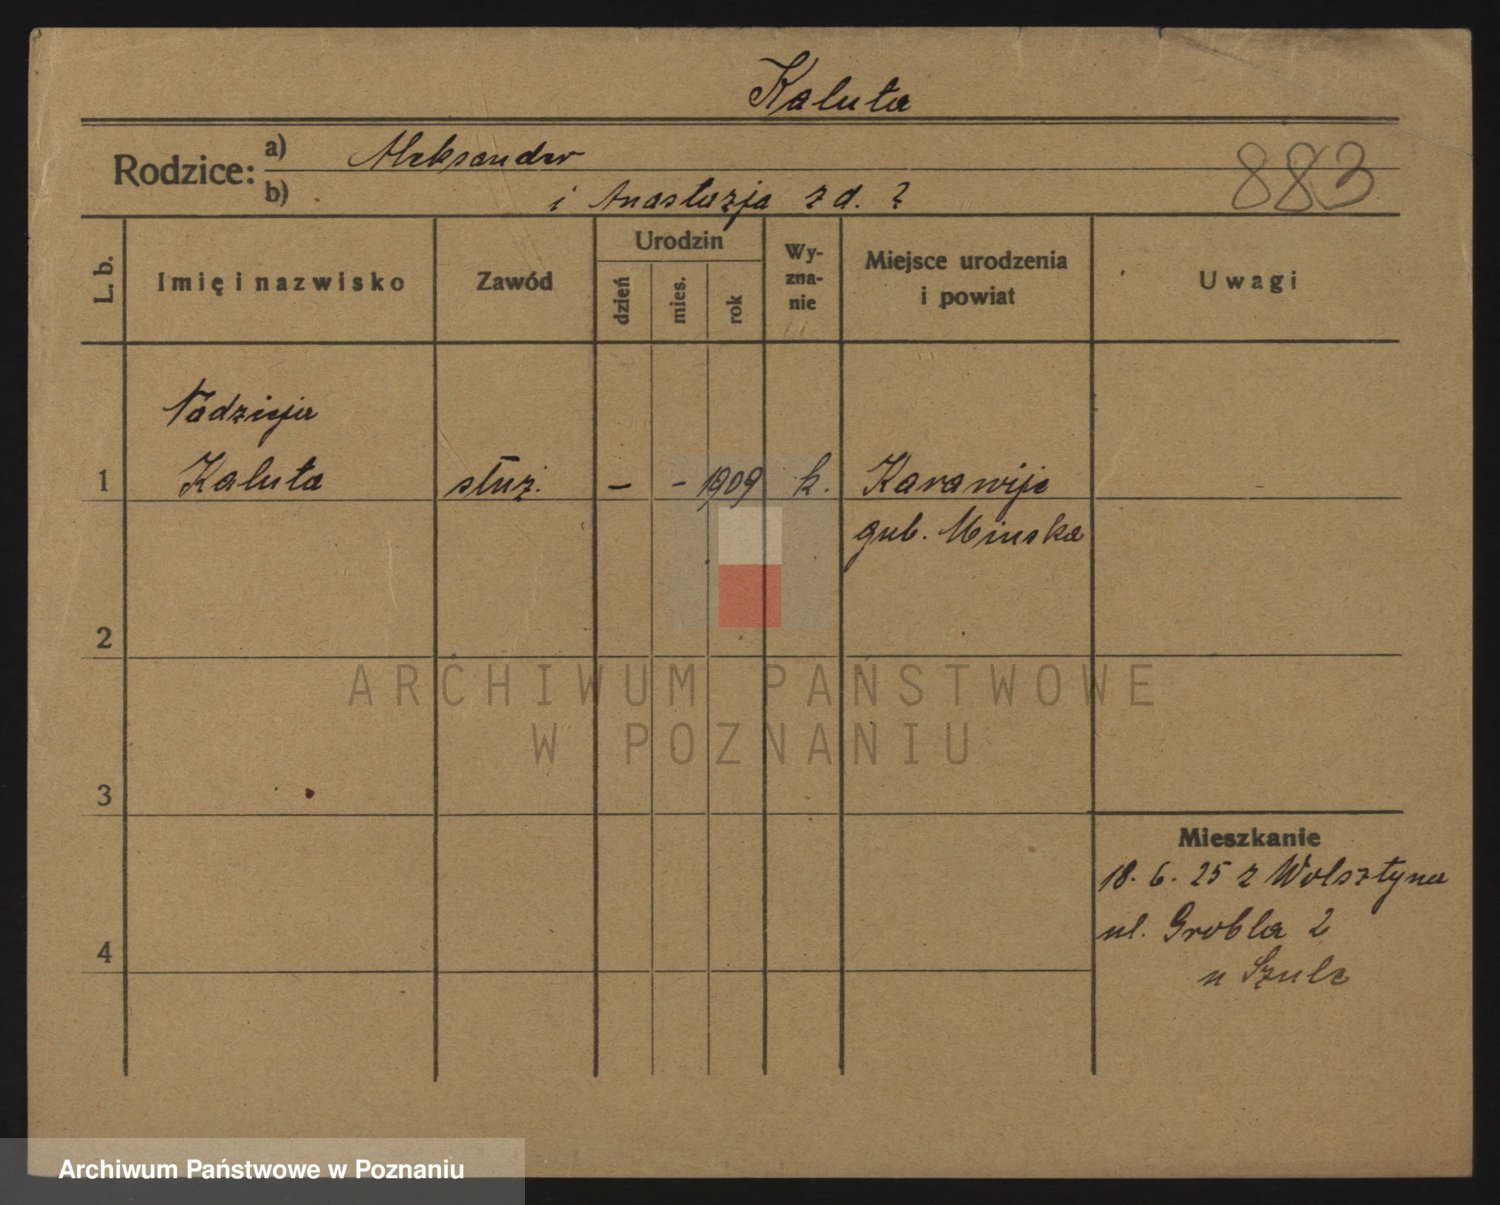 Kaluta
Rodzice:
a) Aleksander
b) i Anastazja z d. ?
883
L. b.
Imię i nazwisko
Zawód
Urodzin
dzień
mies.
rok
Wy-
zna-
nie
Miejsce urodzenia
i powiat
Uwagi
Nadzieja
1 Kaluta służ. - - 1909 k. Karawije
gub. Minska
2
3
4
Mieszkanie
18. 6. 25 z Wolsztyna
ul. Grobla 2
u Szulc
ARCHIWUM PAŃSTWOWE
W POZNANIU
Archiwum Państwowe w Poznaniu